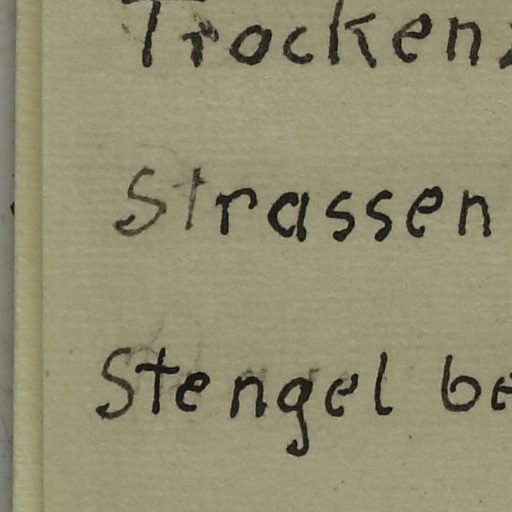 Trocken
Strassen
Stengel be